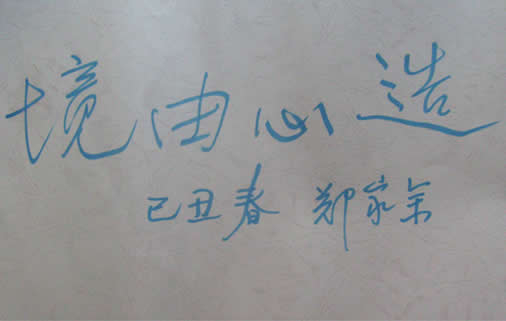 境由心造
己丑春 郑家余